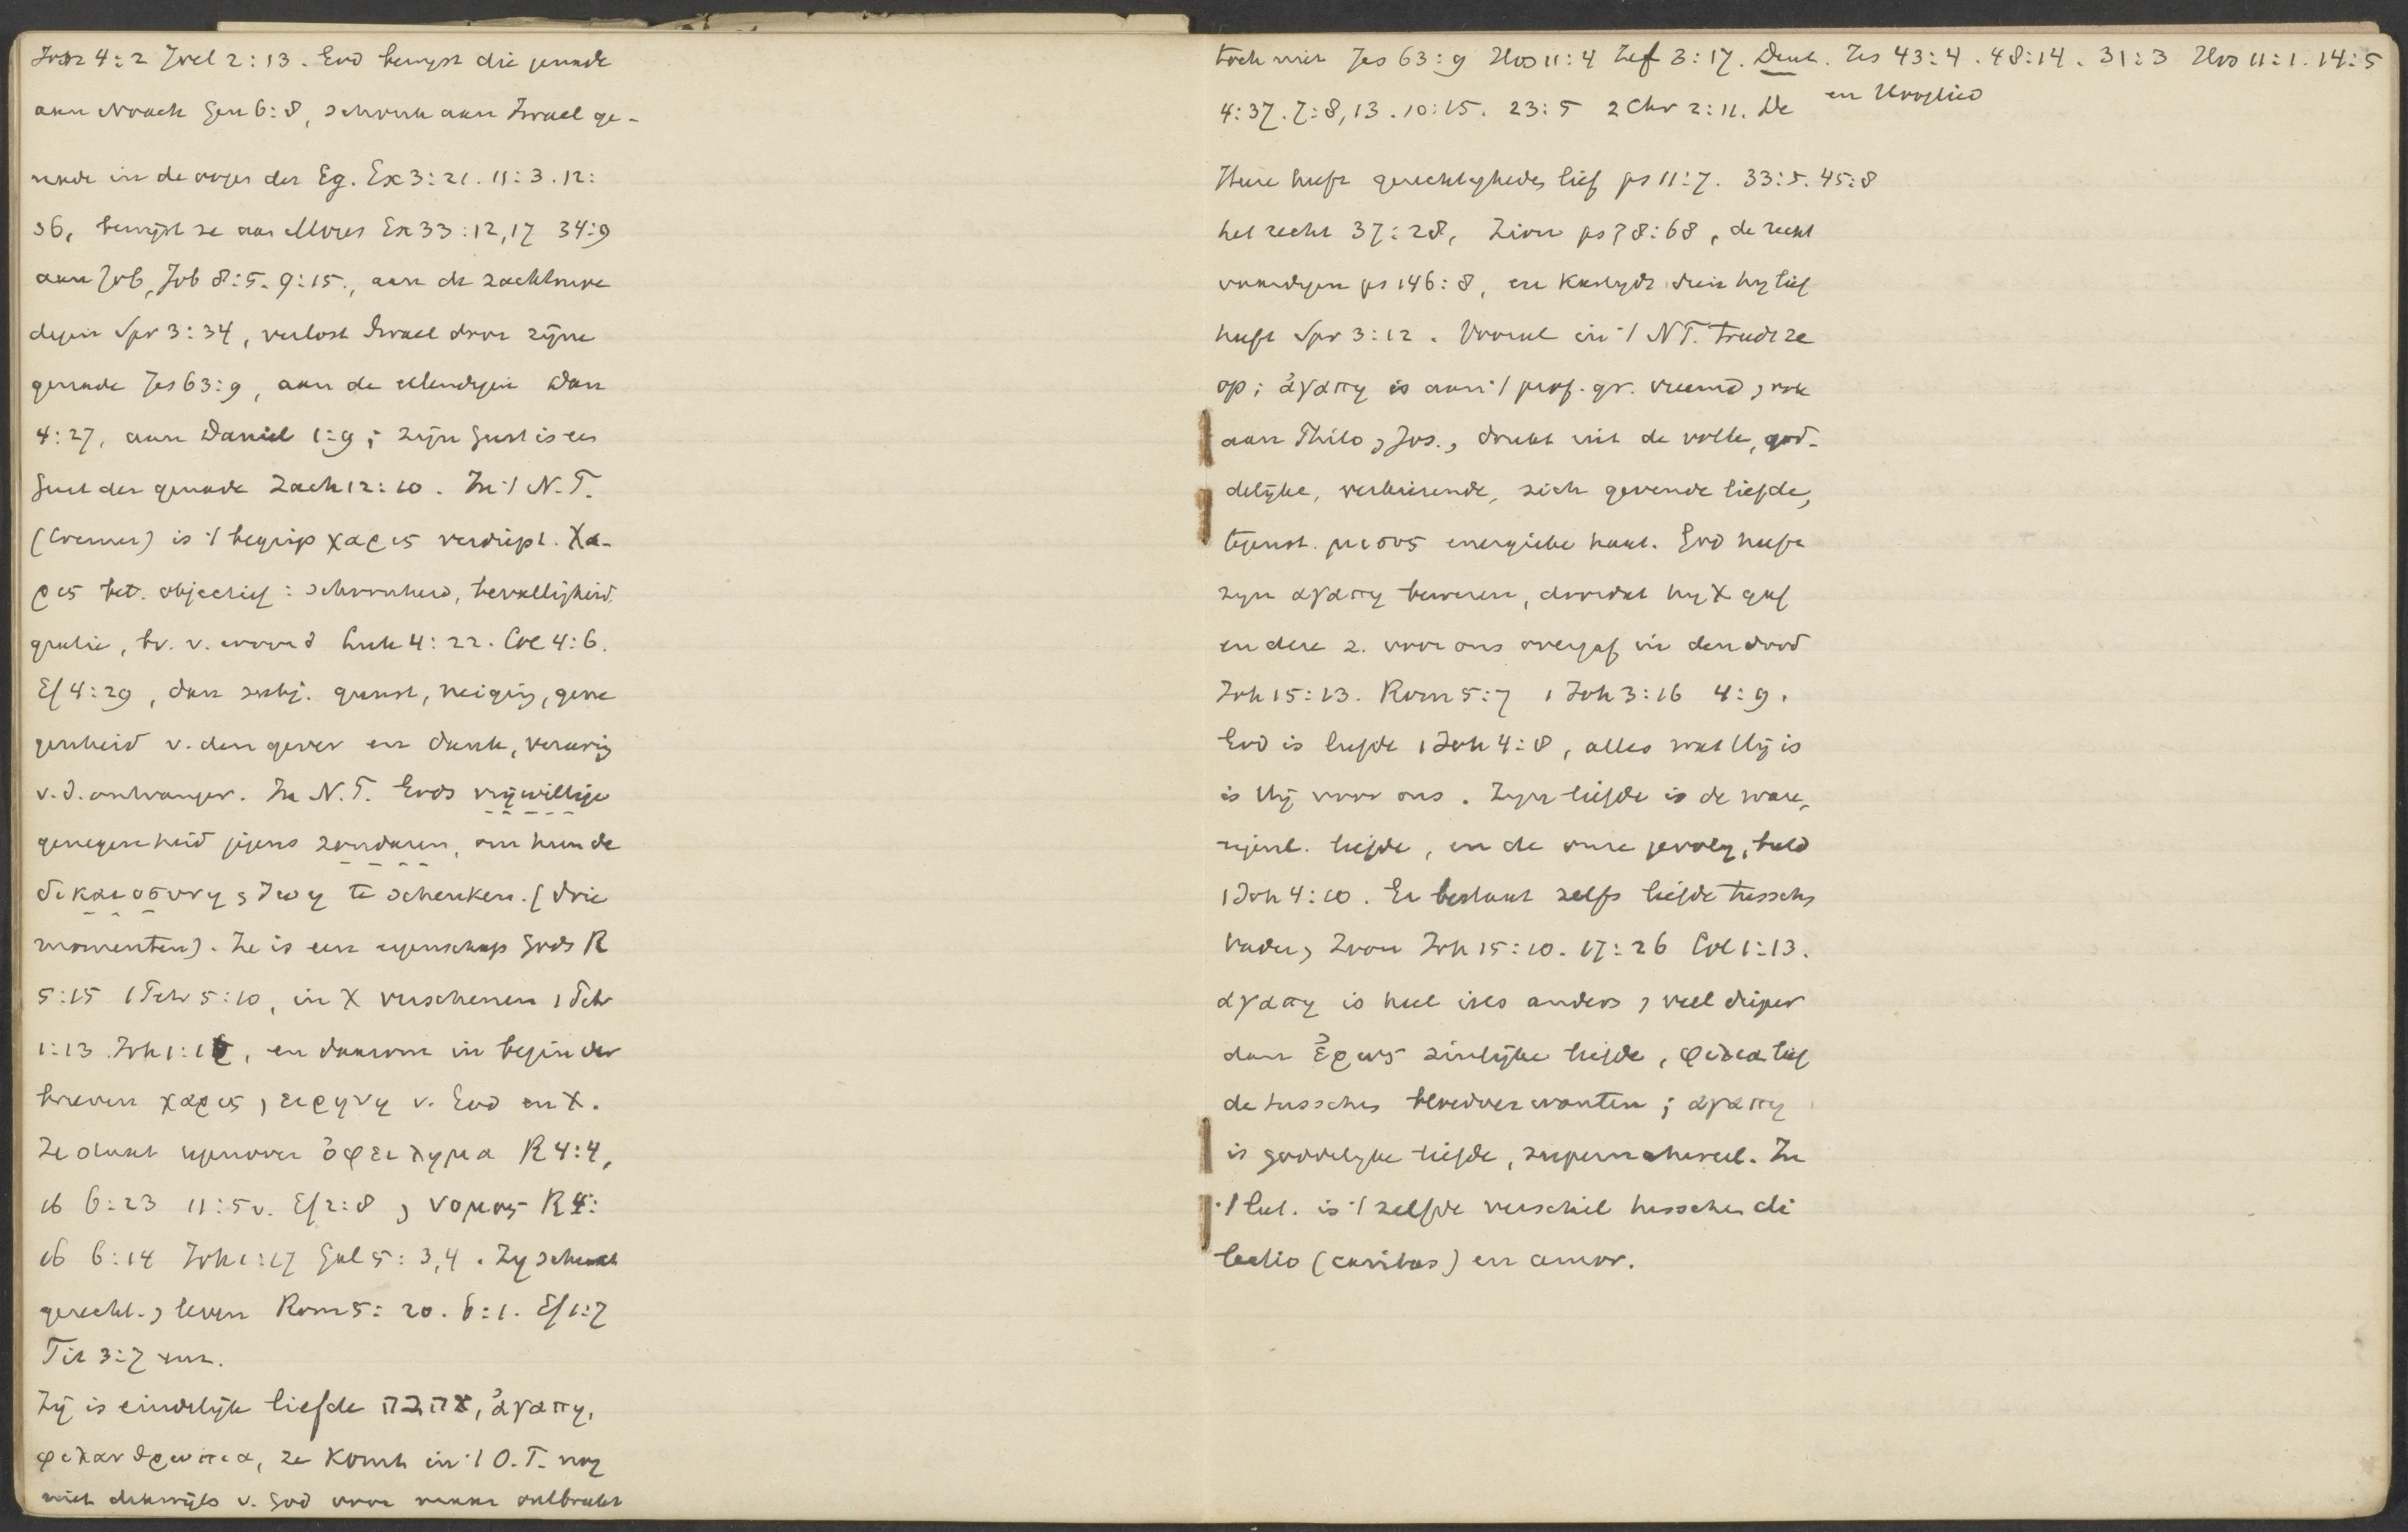 Jon 4:2 Joel 2:13. God bewijst die genade
aan Noach Gen 6:8, schonk aan Israel ge-
nade in de oogen der Eg. Ex 3:21. 11:3. 12:
36, bewijst ze aan Mozes Ex 33:12,17 34:9
aan Job, Job 8:5. 9:15., aan de zachtmoe
digen Spr 3:34, verlost Israel door zijne
genade Jes 63:9, aan de ellendigen Dan
4:27, aan Daniel 1:9; zijn Geest is een
Geest der genade Zach 12:10. In 't N.T.
(Cremer) is 't begrip χαρις verdiept. Χα-
ρις bet. objectief: schoonheid, bevalligheid,
gratie, bv. v. woord Luk 4:22. Col 4:6.
Ef 4:29, dan subj. gunst, neiging, gene
genheid v. den gever en dank, vereering
v.d. ontvanger. In N.T. Gods vrijwillige
genegenheid jegens zondaren, om hun de
δικαιοσυνη, ζωη te schenken. (drie
momenten). Ze is een eigenschap Gods R
5:15 1 Petr 5:10, in X verschenen 1 Petr
1:13 Joh 1:16, en daarom in begin der
brieven χαρις, ειρηνη v. God en X.
Ze staat tegenover ὀφειλημα R 4:4,
16 6:23 11:5v. Ef 2:8, νομος R 4:
16 6:14 Joh 1:17 Gal 5:3,4. Zy schenkt
gerecht., leven Rom 5:20. 6:1. Ef 1:7
Tit 3:7 enz.
Zij is eindelijk liefde אהבה, ἀγαπη,
φιλανθρωπια, ze komt in 't O.T. nog
niet dikwijls v. God voor maar ontbreekt
toch niet Jes 63:9 Hos 11:4 Zef 3:17. Deut. Jes 43:4. 48:14. 31:3 Hos 11:1. 14:5
4:37. 7:8,13. 10:15. 23:5 2 Chr 2:11. De en Hooglied
Heere heeft gerechtigheden lief ps 11:7. 33:5. 45:8
het recht 37:28, Zion ps 78:68, de recht
vaardigen ps 146:8, en kastydt dien hy lief
heeft Spr 3:12. Vooral in 't NT. treedt ze
op; ἀγαπη is aan 't prof. gr. vreemd, ook
aan Philo, Jos., drukt uit de volle, god-
delijke, verkiezende, zich gevende liefde,
tegenst. μισος energieke haat. God heeft
zyn αγαπη bewezen, doordat hy X gaf
en deze z. voor ons overgaf in den dood
Joh 15:13. Rom 5:7 1 Joh 3:16 4:9.
God is liefde 1 Joh 4:8, alles wat Hij is
is Hij voor ons. Zyn liefde is de ware,
eigenl. liefde, en de onze gevolg, beeld
1 Joh 4:10. Er bestaat zelfs liefde tusschen
Vader, Zoon Joh 15:10. 17:26 Col 1:13.
αγαπη is heel iets anders, veel dieper
dan ἐρως zinlijke liefde, φιλια lief
de tusschen bloedverwanten; αγαπη
is goddelyke liefde, supernatureel. In
't Lat. is 't zelfde verschil tusschen di
lectio (caritas) en amor.